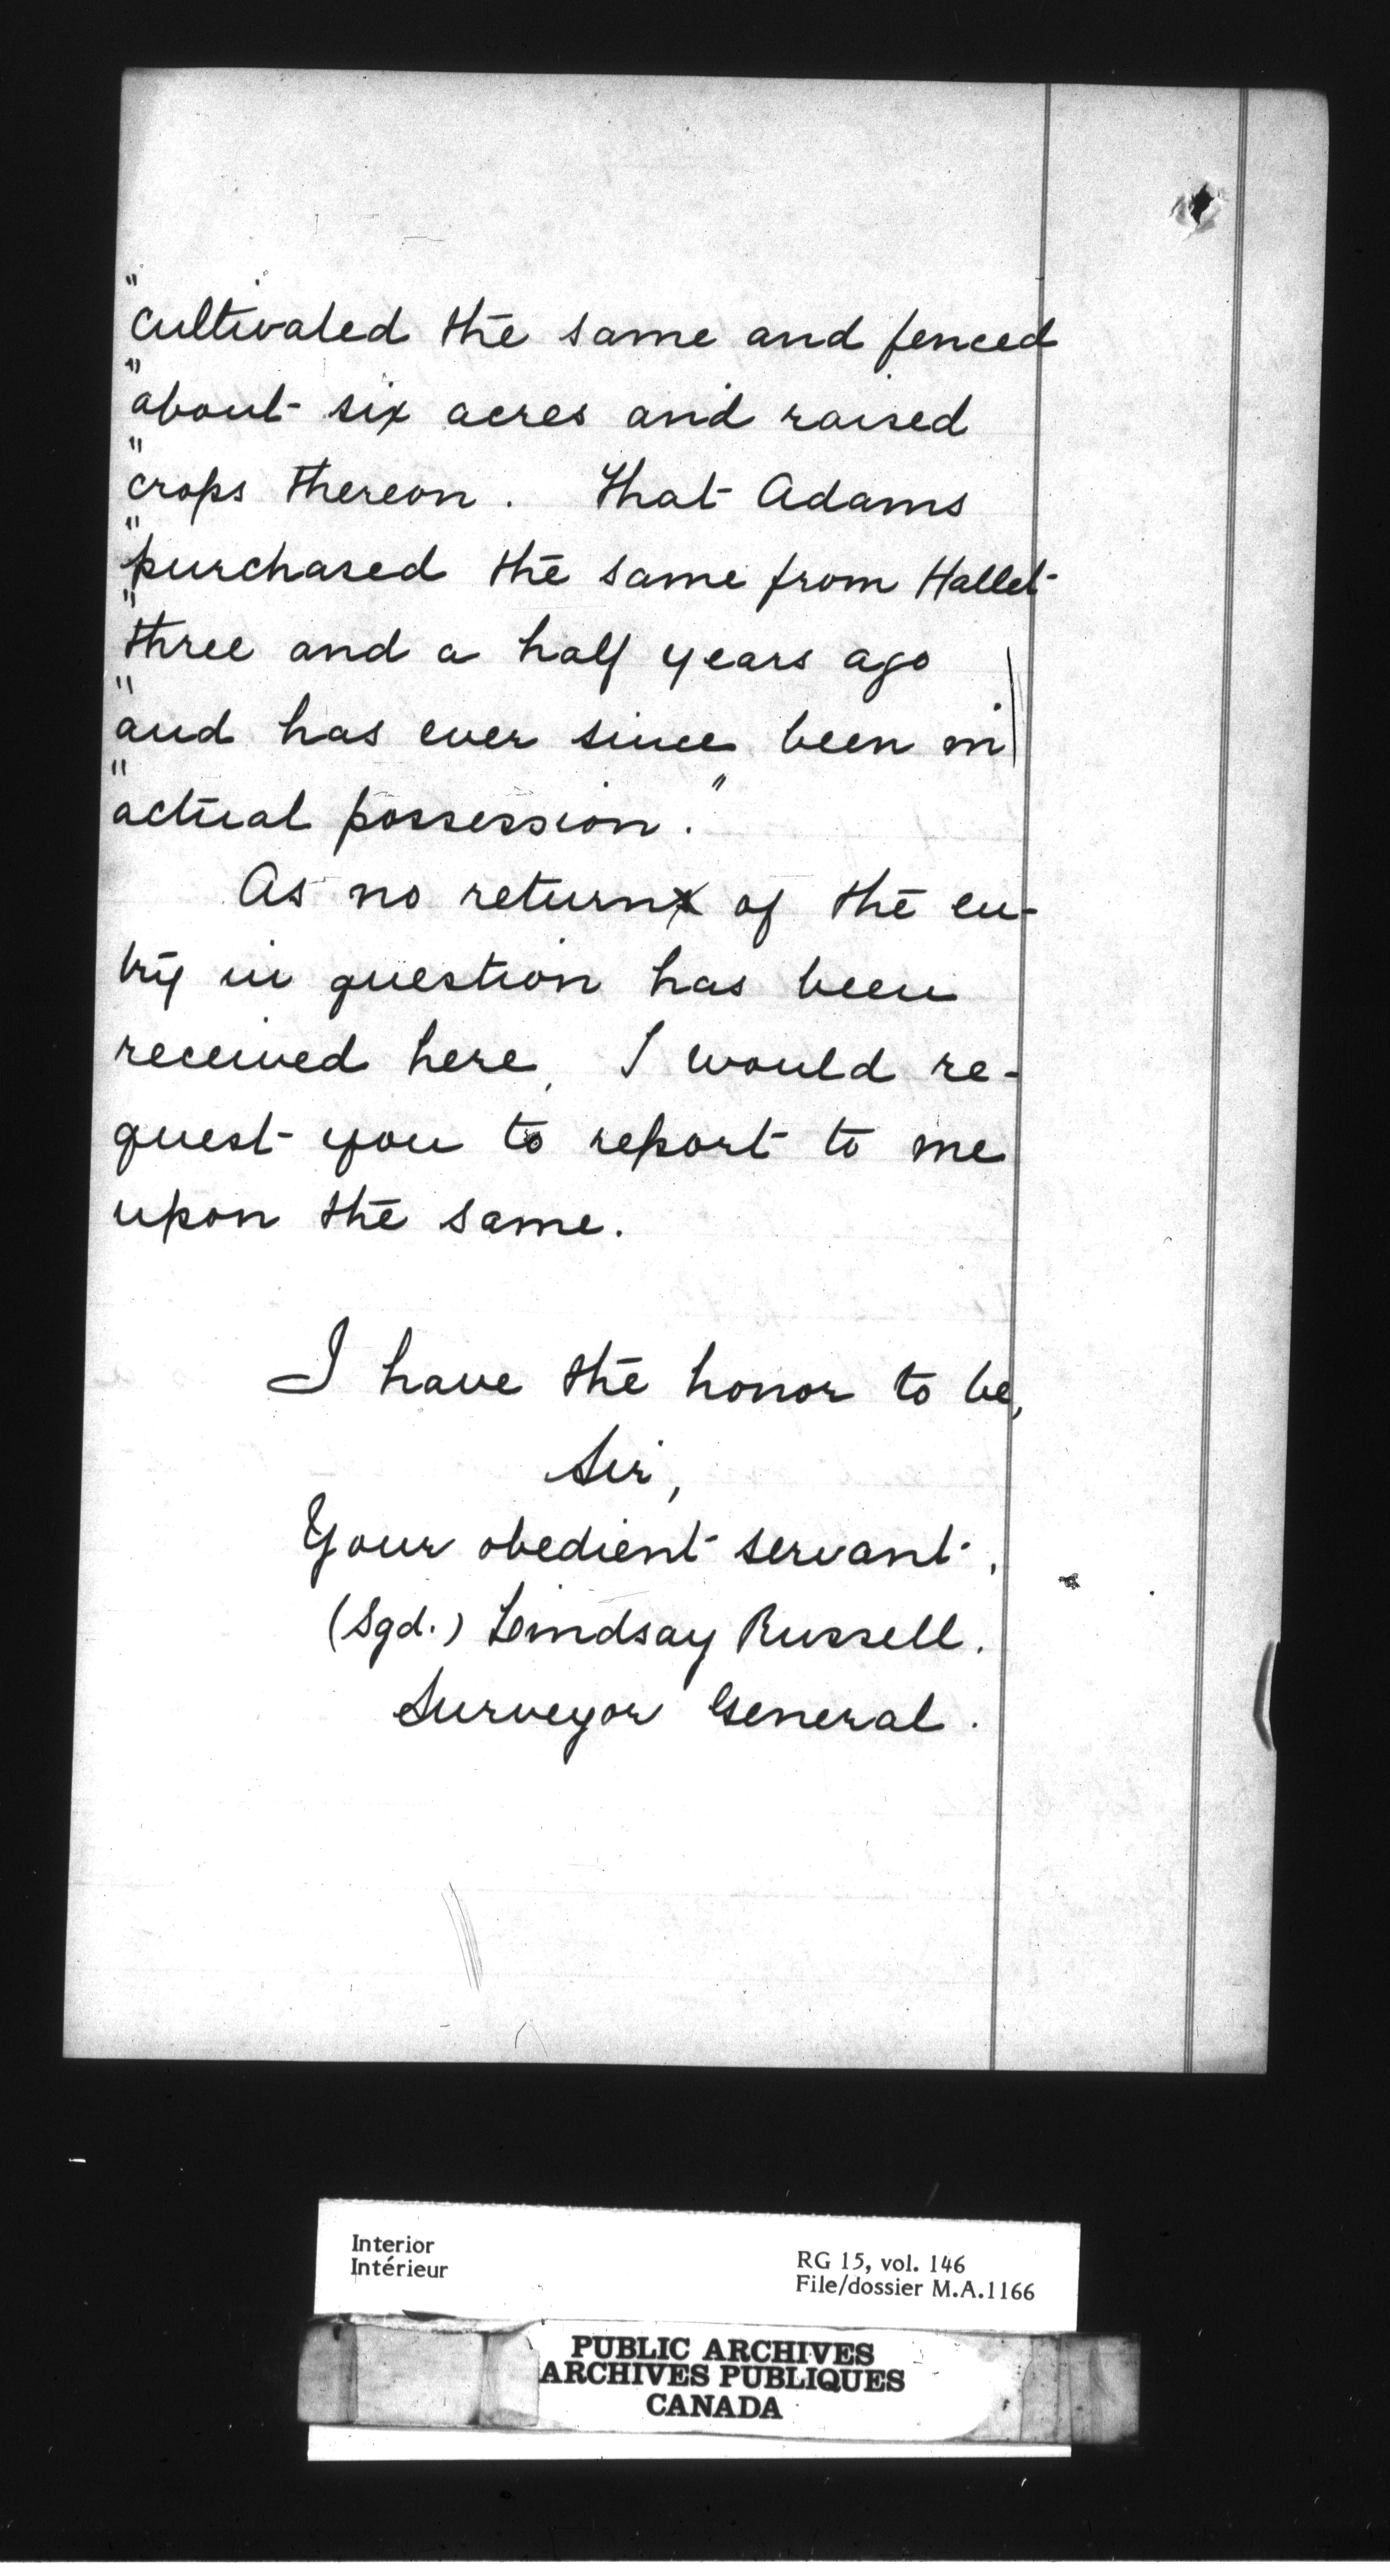 "cultivated the same and fenced
"about six acres and raised
"crops thereon. That Adams
"purchased the same from Hallet
"three and a half years ago
"and has ever since been in
"actual possession."
As no return of the en-
try in question has been
received here, I would re-
quest you to report to me
upon the same.
I have the honor to be,
Sir,
Your obedient servant,
(Sgd.) Lindsay Russell.
Surveyor General.
Interior
Intérieur
RG 15, vol. 146
File/dossier M.A.1166
PUBLIC ARCHIVES
ARCHIVES PUBLIQUES
CANADA